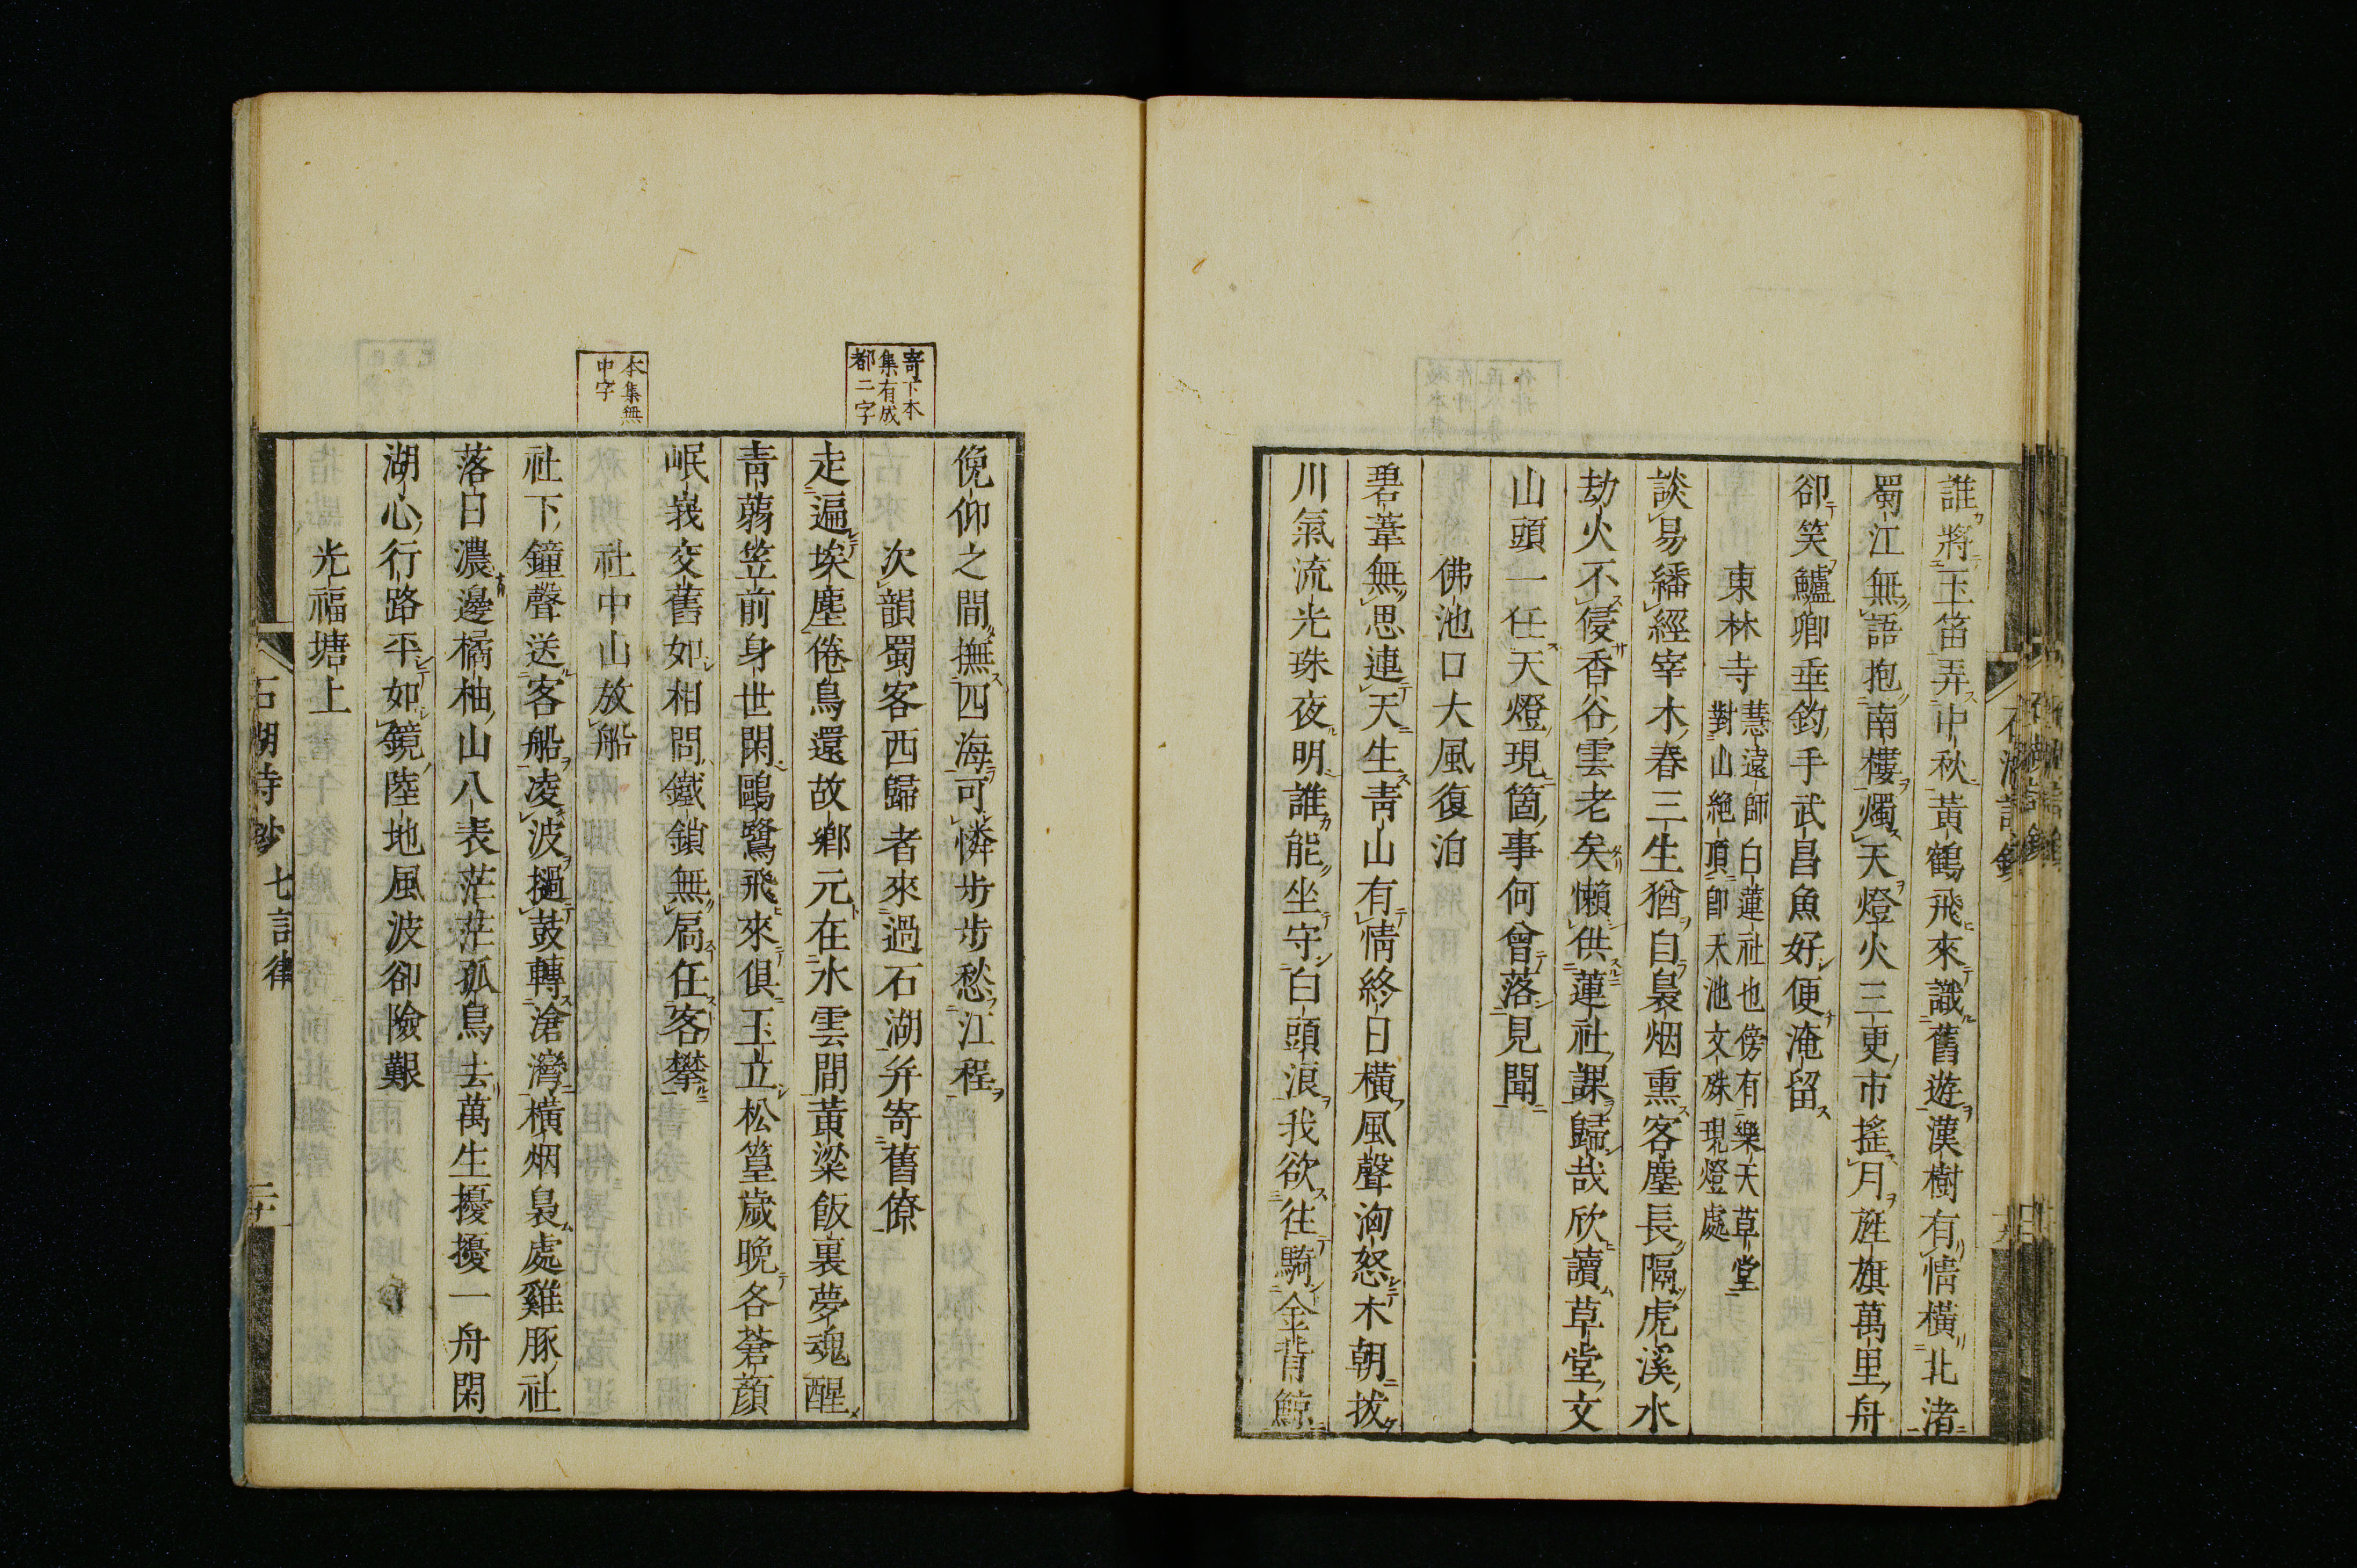 誰將玉笛弄中秋黃鶴飛來識舊遊漢樹有情橫北渚
蜀江無語抱南樓燭天燈火三更市搖月旌旗萬里舟
卻笑鱸鄉垂釣手武昌魚好便淹留
東林寺
慧遠師白蓮社也傍有樂天草堂
對山絕頂卽天池文殊現燈處
談易繙經宰木春三生猶自裊烟熏客塵長隔虎溪水
劫火不侵香谷雲老矣懶供蓮社課歸哉欣讀草堂文
山頭一任天燈現箇事何曾落見聞
佛池口大風復泊
碧葦無思連天生靑山有情終日橫風聲洶怒木朝拔
川氣流光珠夜明誰能坐守白頭浪我欲往騎金背鯨
俛仰之間撫四海可憐步步愁江程
寄下本
集有成
都二字
次韻蜀客西歸者來過石湖幷寄舊僚
走遍埃塵倦鳥還故鄉元在水雲間黃粱飯裏夢魂醒
靑蒻笠前身世閑鷗鷺飛來俱玉立松篁歲晚各蒼顏
岷峩交舊如相問鐵鎖無扃任客攀
本集無
中字
社中山放船
社下鐘聲送客船凌波撾鼓轉滄灣橫烟裊處雞豚社
落日濃邊橘柚山八表茫茫孤鳥去萬生擾擾一舟閑
湖心行路平如鏡陸地風波卻險艱
光福塘上
石湖詩鈔 七言律